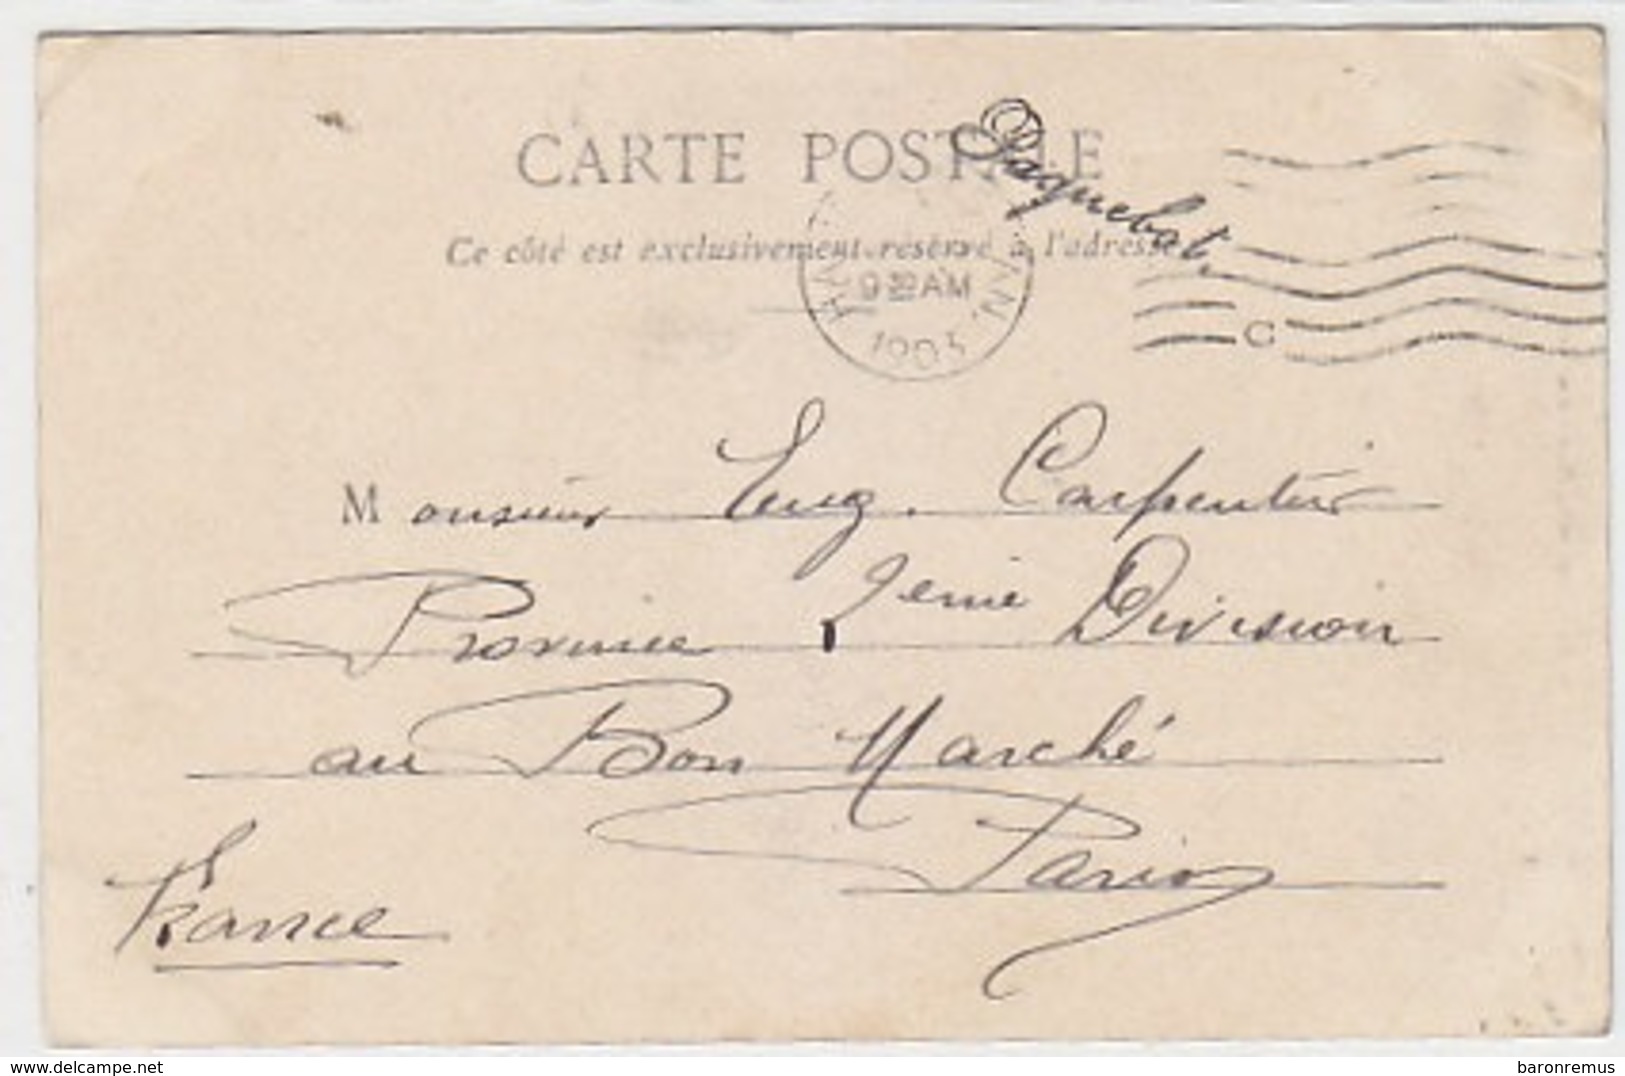 CARTE POSTALE
Paquebot.
Ce côté est exclusivement réservé à l'adresse
9 30 AM
1903
C
Monsieur Eug. Carpentier
Province 2eme Division
au Bon Marché
Paris
France
delcampe.net
baronremus